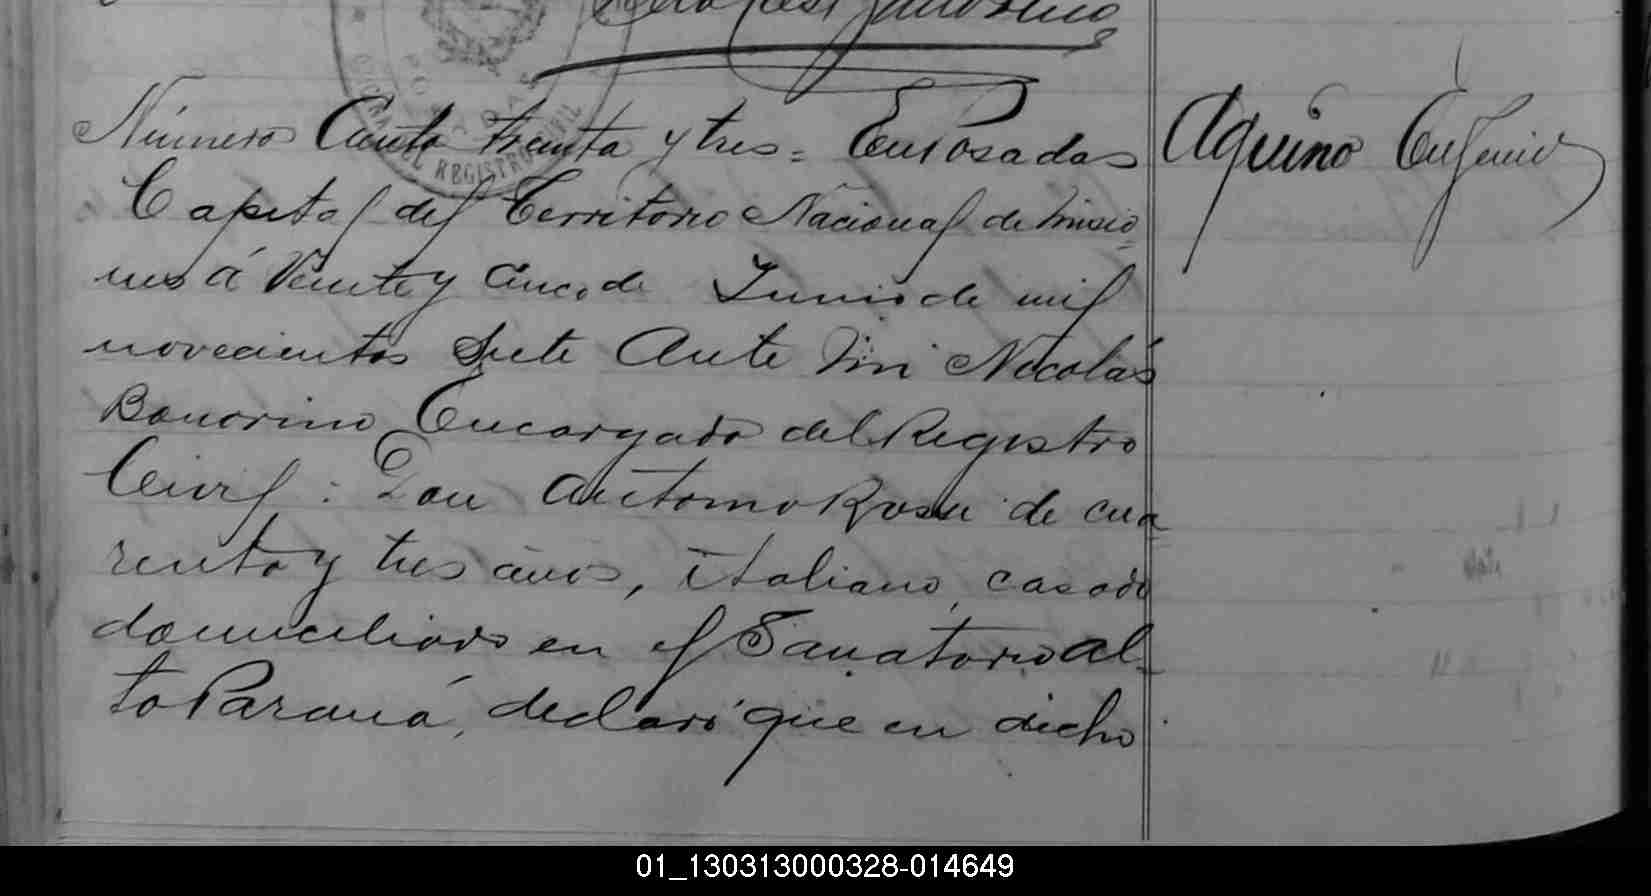 OFICINA DEL REGISTRO CIVIL
POSADAS
Número Ciento treinta y tres = En Posadas
Capital del Territorio Nacional de Misio-
nes á Veinte y cinco de Junio de mil
novecientos siete Ante mi Nicolás
Bonorino Encargado del Registro
Civil : Don Antonio Rossi de cua
renta y tres años, italiano, casado
domiciliado en el Sanatorio Al-
to Paraná, declaró que en dicho
Aquino Eugenio
01_130313000328-014649